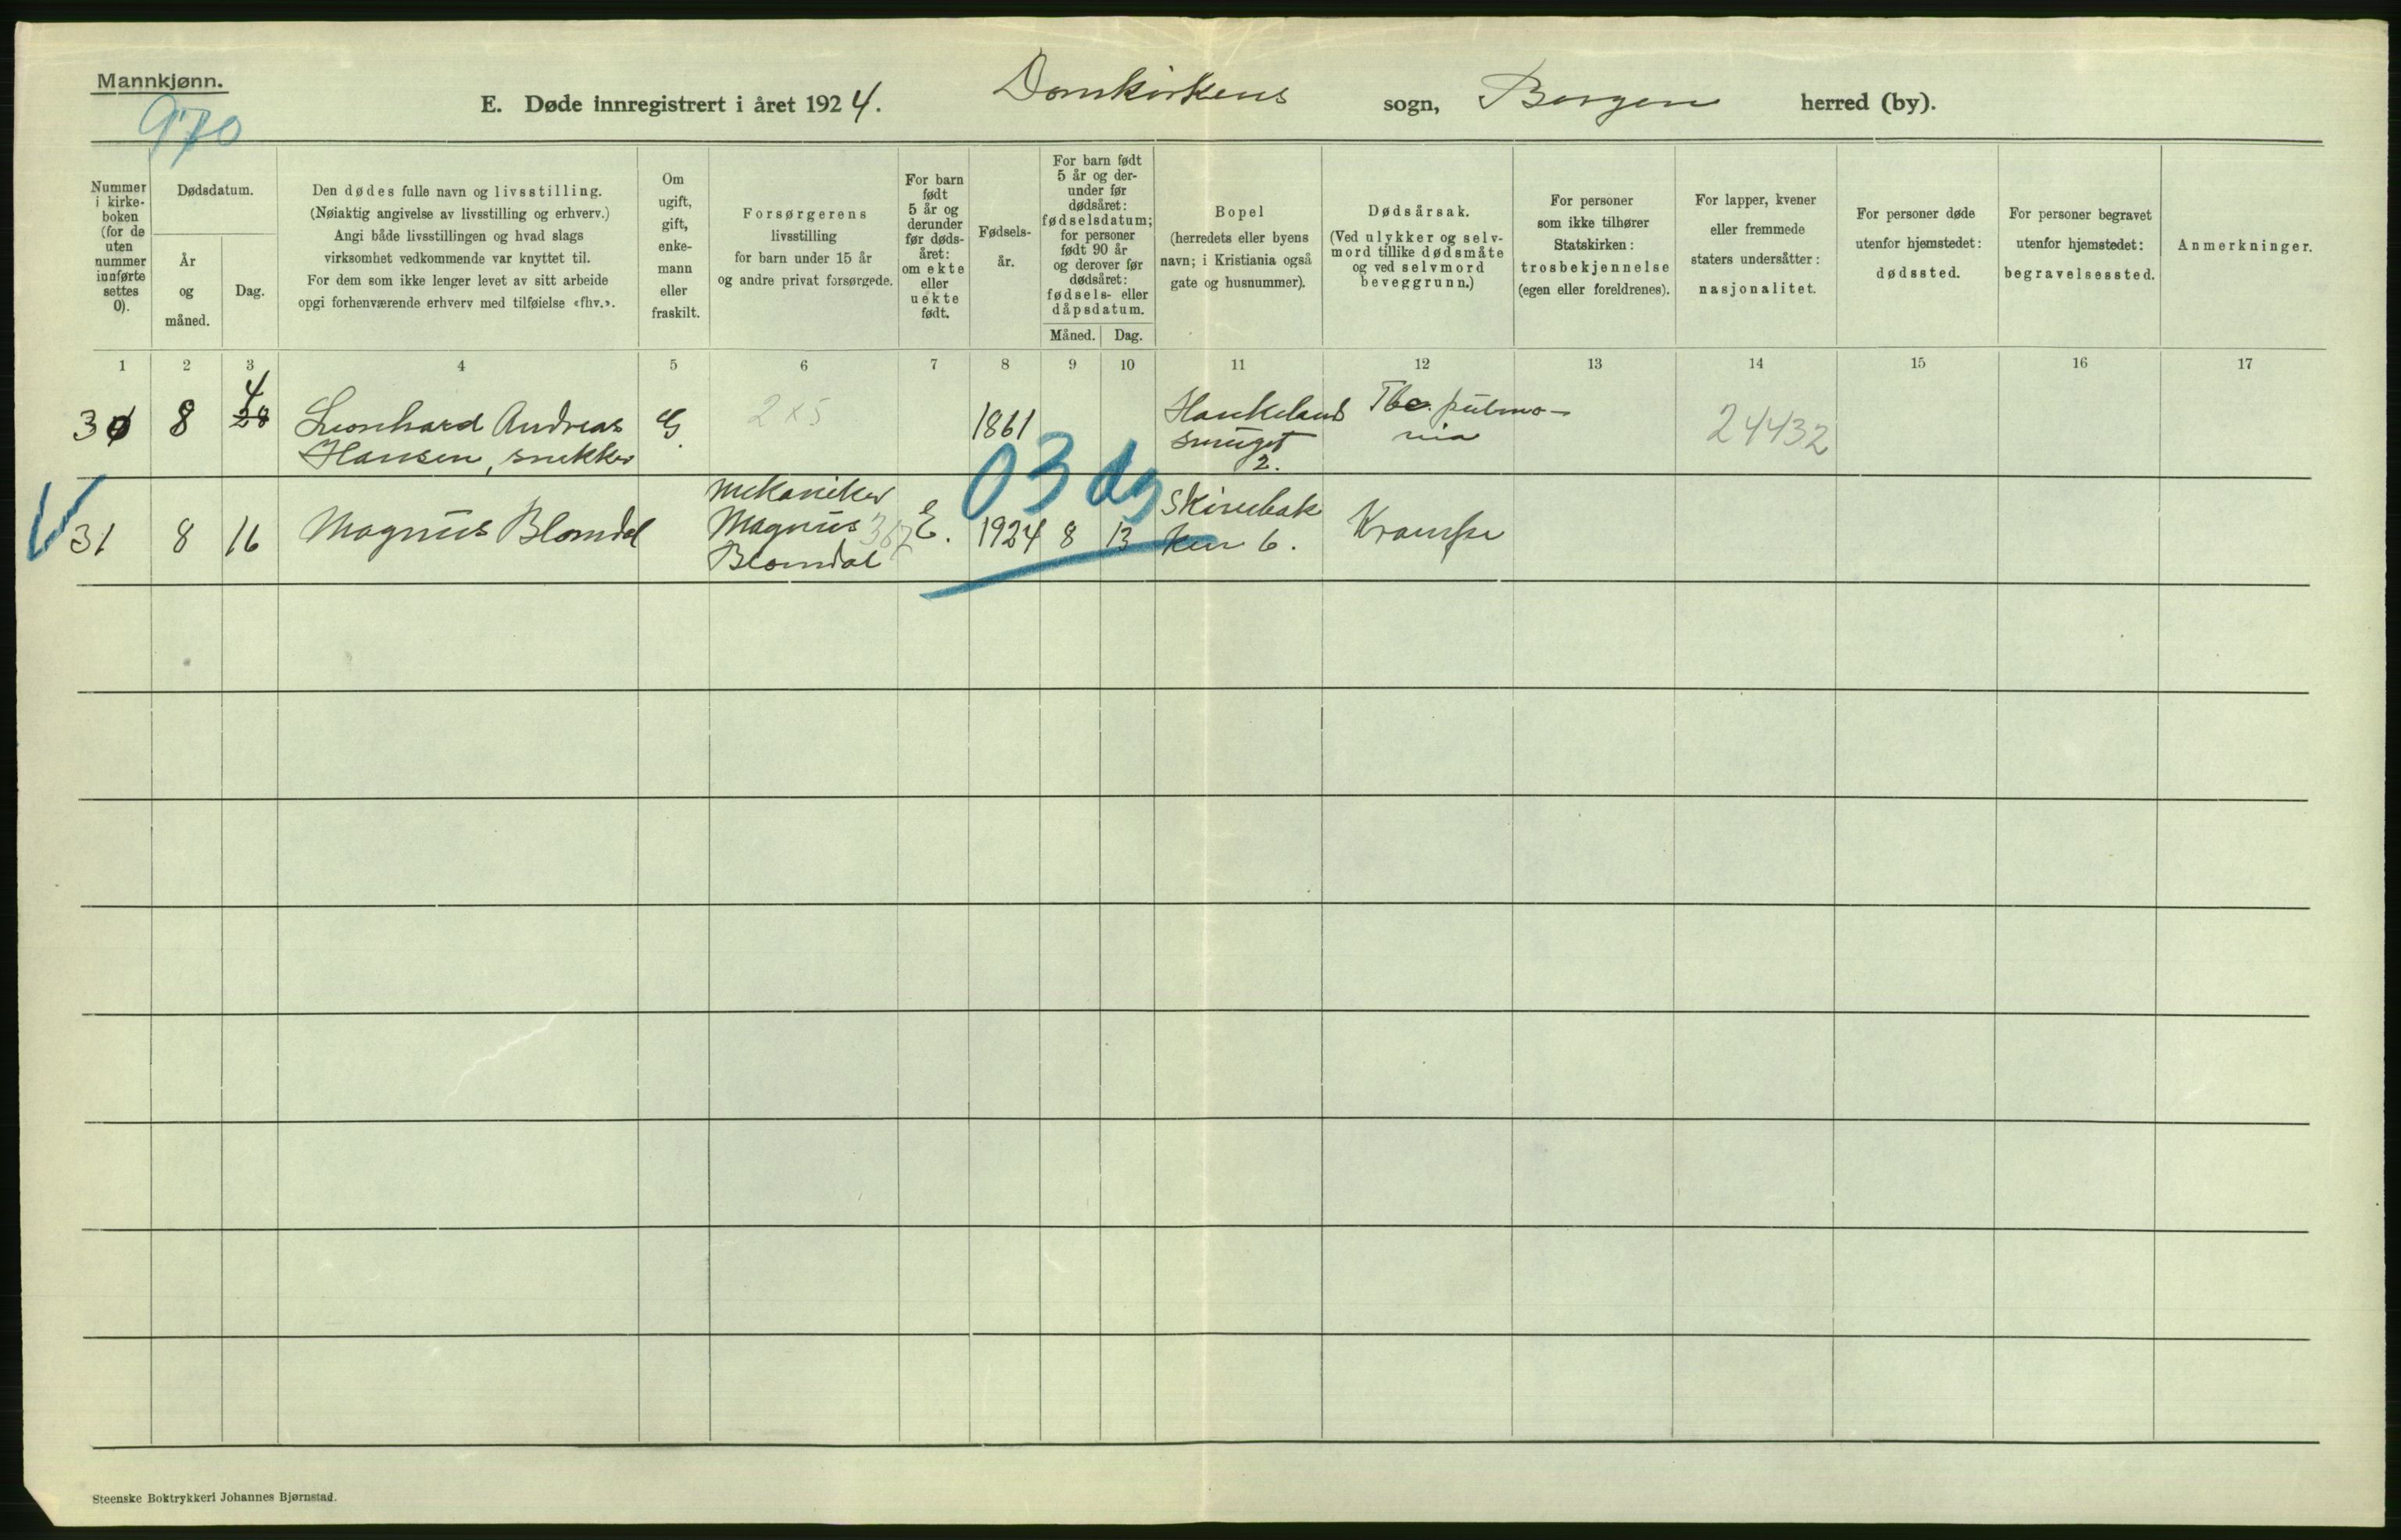 Mannkjønn.
970
E. Døde innregistrert i året 1924. Domkirkens sogn, Bergen herred (by).
Nummer i kirke-boken (for de uten nummer innførte settes 0).
Dødsdatum.
År og måned.
Dag.
Den dødes fulle navn og livsstilling.
(Nøiaktig angivelse av livsstilling og erhverv.)
Angi både livsstillingen og hvad slags
virksomhet vedkommende var knyttet til.
For dem som ikke lenger levet av sitt arbeide
opgi forhenværende erhverv med tilføielse «fhv.».
Om ugift, gift, enke-mann eller fraskilt.
Forsørgerens
livsstilling
for barn under 15 år
og andre privat forsørgede.
For barn født 5 år og derunder før døds-året: om ekte eller uekte født.
Fødsels-år.
For barn født 5 år og der-under før dødsåret: fødselsdatum; for personer født 90 år og derover før dødsåret: fødsels- eller dåpsdatum.
Måned. Dag.
Bopel
(herredets eller byens
navn; i Kristiania også
gate og husnummer).
Dødsårsak.
(Ved ulykker og selv-
mord tillike dødsmåte
og ved selvmord
beveggrunn.)
For personer
som ikke tilhører
Statskirken:
trosbekjennelse
(egen eller foreldrenes).
For lapper, kvener
eller fremmede
staters undersåtter:
nasjonalitet.
For personer døde
utenfor hjemstedet:
dødssted.
For personer begravet
utenfor hjemstedet:
begravelsessted.
Anmerkninger.
1 2 3 4 5 6 7 8 9 10 11 12 13 14 15 16 17
4
30 8 28 Leonhard Andreas G. 2x5 1861 Haukeland Tbc. pulmo- 24432
Hansen, snekker smuget nia
2.
03 dg
mekaniker Skivebak
31 8 16 Magnus Blomdal Magnus 367 E. 1924 8 13 ken 6. Krampe
Blomdal
Steenske Boktrykkeri Johannes Bjørnstad.